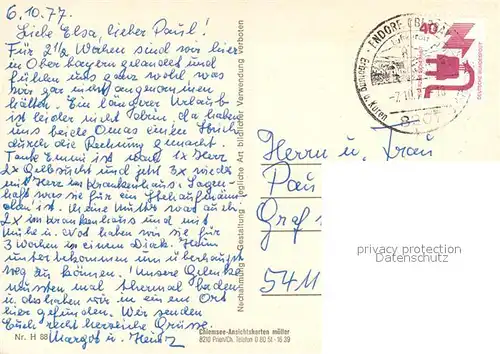 6.10.77.
Liebe Elsa, lieber Paul!
Für 2½ Wochen sind wir hier
in Oberbayern gelandet und
fühlen uns ganz wohl was
wir gar nicht angenommen
hätten. Ein längerer Urlaub
ist leider nicht drin, da haben
uns beide Omas einen Strich
durch die Rechnung gemacht.
Tante Emmi ist 1x Herz
2x Gelbsucht und jetzt 3x wieder
mit Herz im Krankenhaus. Sagen-
haft was sie für ein Stehaufmänn-
lein ist. Meine Mutter war auch
2x im Krankenhaus und mit
Mühe u. Not haben wir sie für
3 Wochen in einem Diak. Heim
unterbekommen um überhaupt
weg zu können! Unsere Gelenke
müssten mal thermal baden
u. das haben wir in ein em Ort
hier gefunden. Wir senden
Euch recht herzliche Grüsse.
Margot u. Heinz
Nr. H 88
Nachahmung Gestaltung Jegliche Art bildlicher Verwendung verboten
Chiemsee-Ansichtskarten müller
8210 Prien/Ch. Telefon 0 80 51 - 16 39
ENDORF (OBERBAY
Erholung u. Kuren
-7.10.77
40
DEUTSCHE BUNDESPOST
Herrn u. Frau
Pau
Graf
5411
privacy protection
Datenschutz